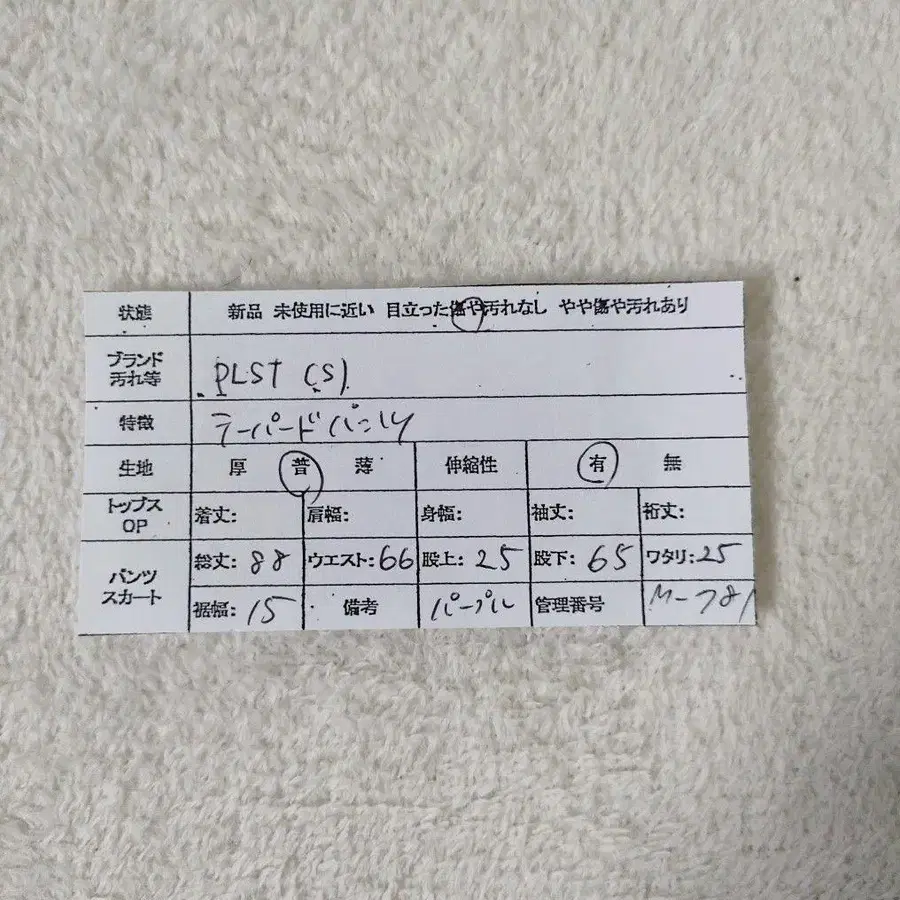 状態 新品 未使用に近い 目立った傷や汚れなし やや傷や汚れあり
ブランド
汚れ等 PLST (S)
特徴 テーパードパンツ
生地 厚 普 薄 伸縮性 有 無
トップス
OP 着丈: 肩幅: 身幅: 袖丈: 裄丈:
パンツ
スカート 総丈: 88 ウエスト: 66 股上: 25 股下: 65 ワタリ: 25
裾幅: 15 備考 パープル 管理番号 M-781